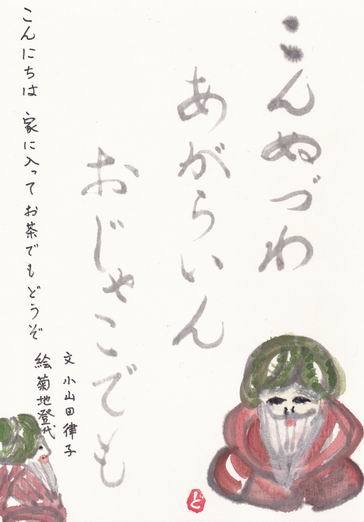 こんぬづわ
あがらいん
おじゃこでも
こんにちは 家に入って お茶でもどうぞ
文 小山田律子
絵 菊地登代
と